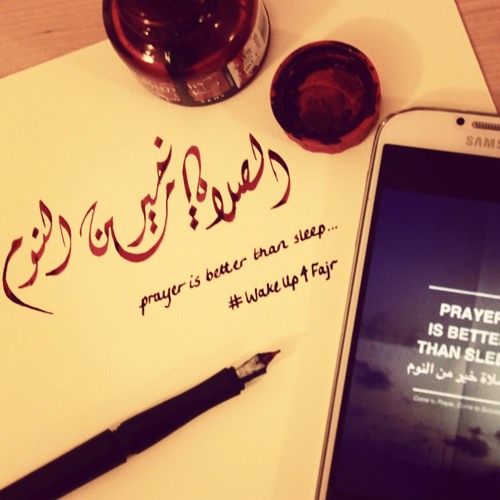 الصلاة خير من النوم
prayer is better than sleep...
#WakeUp4Fajr
SAMS
PRAYER
IS BETTE
THAN SLEE
لاة خير من النوم
Come to Prayer, Come to Succ